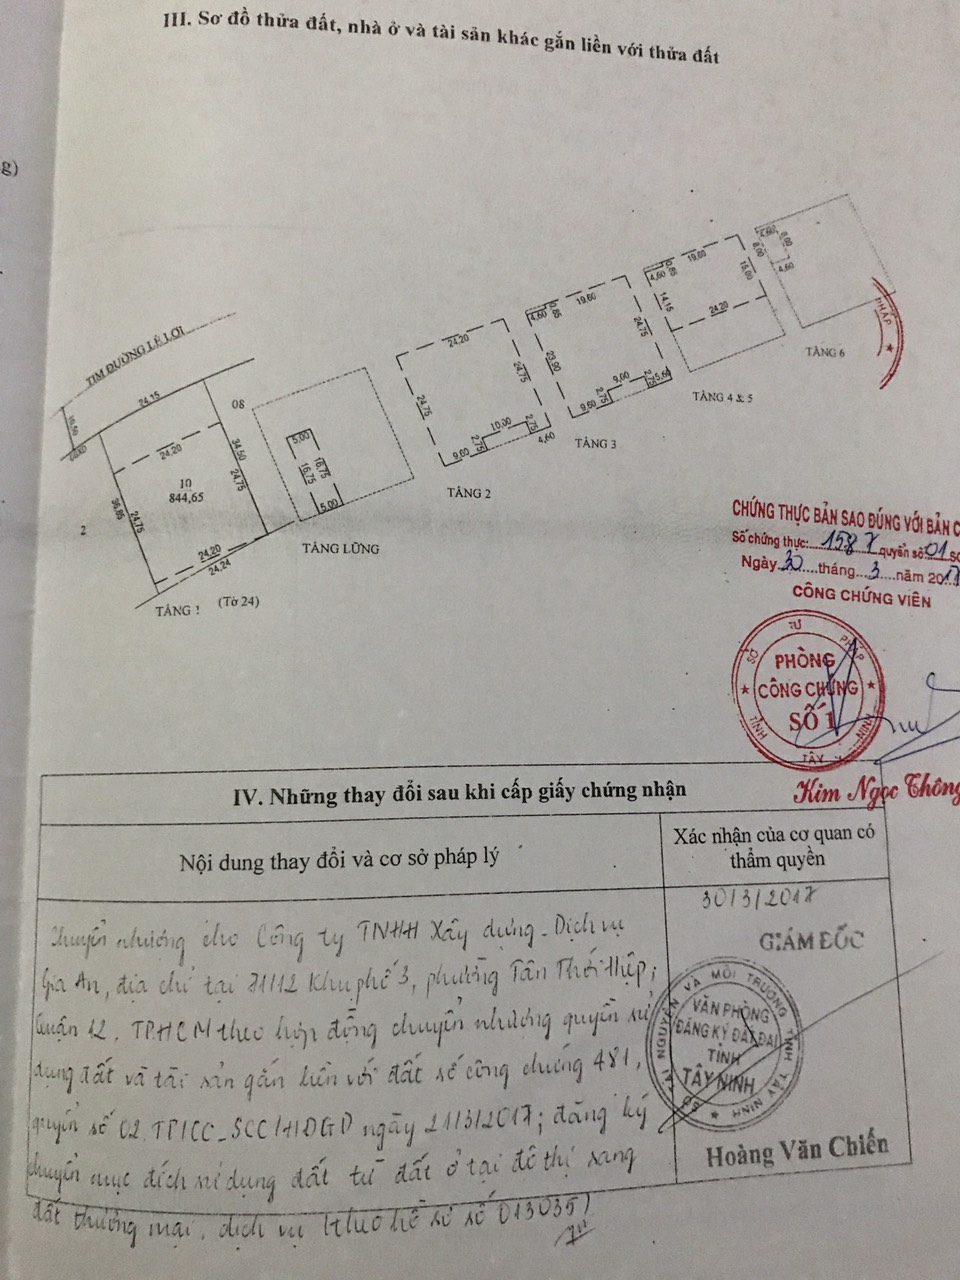 III. Sơ đồ thửa đất, nhà ở và tài sản khác gắn liền với thửa đất
g)
TIM ĐƯỜNG LÊ LỢI
16,50
CGXD
24,15
08
24,20
34,50
24,75
10
844,65
36,85
24,75
2
24,20
24,24
TẦNG 1
(Tờ 24)
5,00
16,75
16,75
5,00
TẦNG LỬNG
24,20
24,75
24,75
10,00
2,75
2,75
9,60
4,60
TẦNG 2
4,60
0,85
19,60
24,75
23,90
9,00
2,75
5,60
2,75
9,60
TẦNG 3
4,60
0,85
19,60
15,00
14,15
24,20
TẦNG 4 & 5
4,60
8,00
8,00
4,60
TẦNG 6
PHÁP
CHỨNG THỰC BẢN SAO ĐÚNG VỚI BẢN C
Số chứng thực: 1587 quyển số: 01 SC
Ngày 30 tháng 3 năm 2017
CÔNG CHỨNG VIÊN
SỞ TƯ PHÁP
PHÒNG
CÔNG CHỨNG
SỐ 1
TỈNH TÂY NINH
Kim Ngọc Thông
IV. Những thay đổi sau khi cấp giấy chứng nhận
Nội dung thay đổi và cơ sở pháp lý
Xác nhận của cơ quan có
thẩm quyền
Chuyển nhượng cho Công ty TNHH Xây dựng - Dịch vụ
Gia An, địa chỉ tại 71/12 Khu phố 3, phường Tân Thới Hiệp,
Quận 12, TPHCM theo hợp đồng chuyển nhượng quyền sử
dụng đất và tài sản gắn liền với đất số công chứng 481,
quyển số 02.TP/CC-SCC/HĐGD ngày 21/3/2017; đăng ký
chuyển mục đích sử dụng đất từ đất ở tại đô thị sang
đất thương mại, dịch vụ (theo hồ sơ số 013035)
30/3/2017
GIÁM ĐỐC
SỞ TÀI NGUYÊN VÀ MÔI TRƯỜNG TỈNH TÂY NINH
VĂN PHÒNG
ĐĂNG KÝ ĐẤT ĐAI
TỈNH
TÂY NINH
Hoàng Văn Chiến